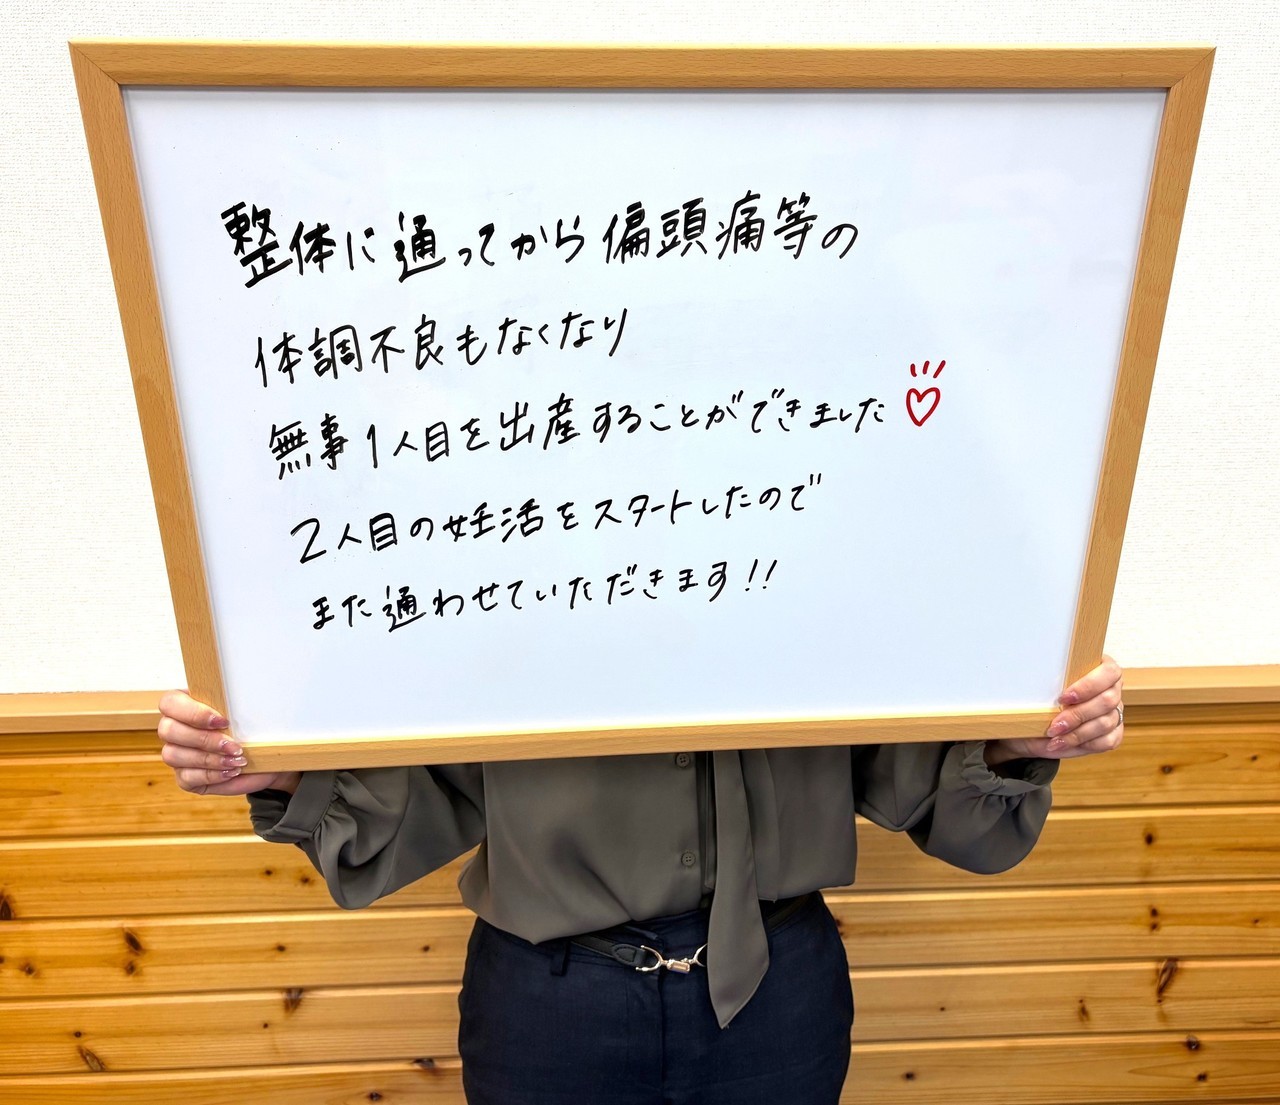 整体に通ってから偏頭痛等の
体調不良もなくなり
無事1人目を出産することができました♡
2人目の妊活をスタートしたので
また通わせていただきます!!